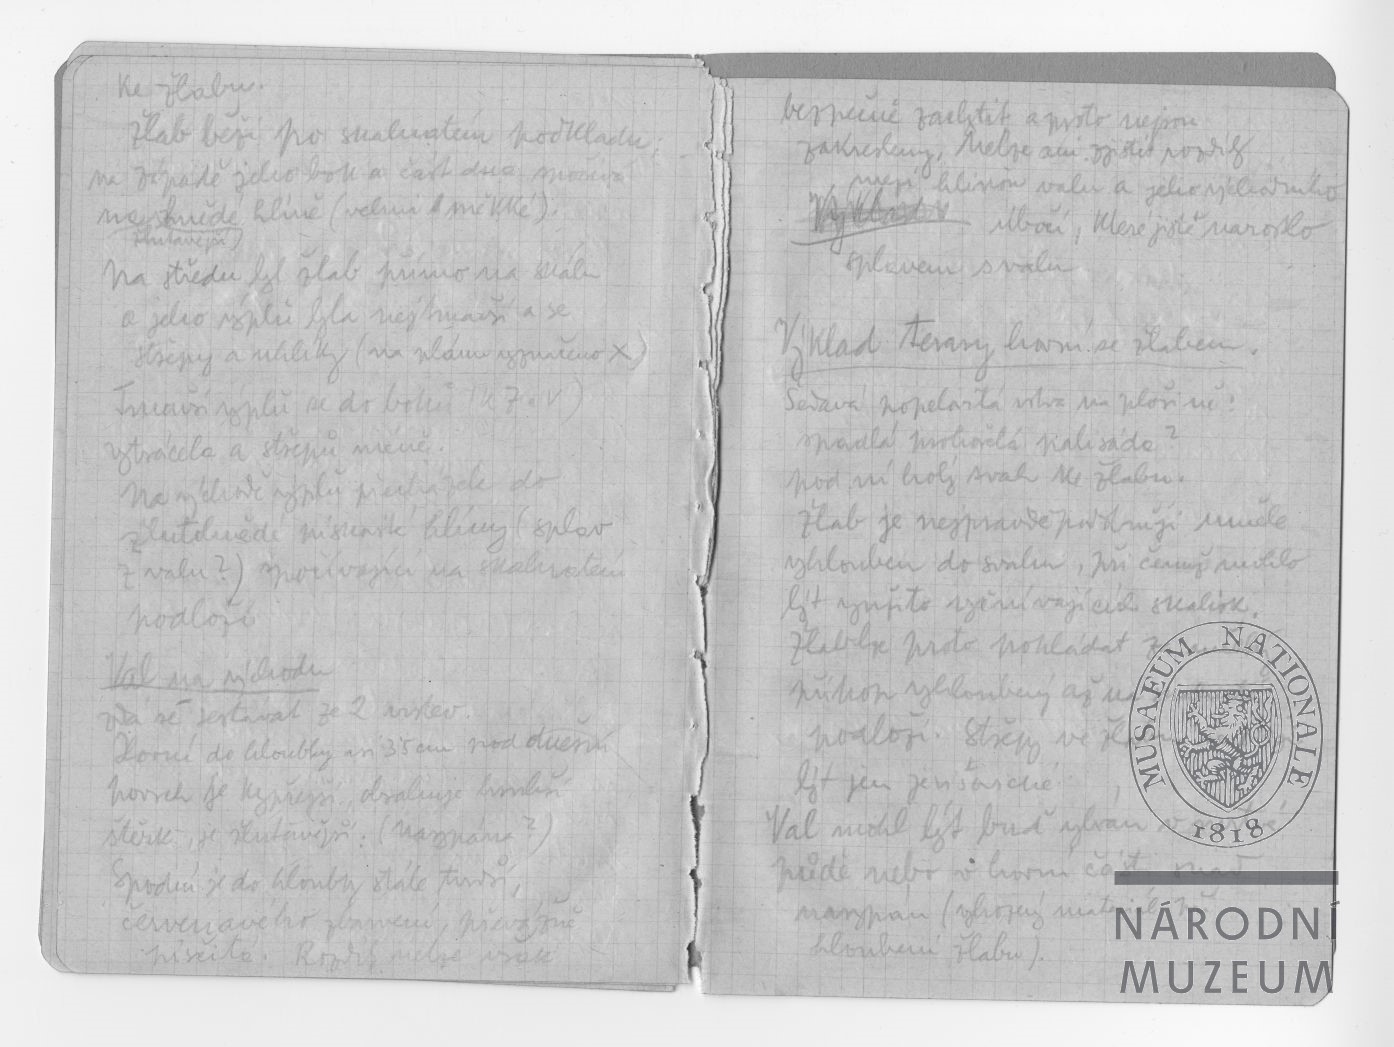 ke žlabu.
Žlab běží po skalnatém podkladu;
na západě jeho bok a část dna spočívá
na hnědé hlíně (velmi měkké).
žlutavější)
Na středu byl žlab přímo na skálu
a jeho výplň byla nejtmavší a se
střepy a uhlíky (na plánu vyznačeno X)
Tmavší výplň se do boků (k Z a V)
vytrácela a střepů méně.
Na východě výplň přecházela do
žlutohnědé písčité hlíny (splav
z valu?) spočívající na skalnatém
podloží
Val na východu
zdá se sestávat ze 2 vrstev.
Horní do hloubky asi 35 cm pod dnešní
povrch je kypřejší, obsahuje hrubší
štěrk, je žlutavější. (Nasypána?)
Spodní je do hloubky stále tvrdší,
červenavého zbarvení, převážně
písčitá. Rozdíly nelze však
bezpečně zachytit a proto nejsou
zakresleny. Nelze ani zjistit rozdíly
mezi hlínou valu a jeho východního
Výklad
úbočí, které jistě narostlo
splavem s valu
Výklad terasy horní se žlabem.
Šedavá popelovitá vrstva na plošině:
spadlá prohořelá palisáda?
pod ní holý svah ke žlabu.
Žlab je nejpravděpodobněji uměle
vyhlouben do svahu, při čemž mohlo
být využito vyčnívajících skalisk.
Žlab lze proto pokládat za
příkop vyhloubený až na
podloží. Střepy ve
být jen
Val mohl být buď vybrán v
půdě nebo v horní části snad
nasypán (vyhozený materiál při
hloubení žlabu).
MUSAEUM NATIONALE
1818
NÁRODNÍ
MUZEUM